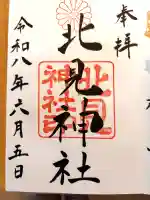 奉拝
北見神社
北見神社印
令和八年六月五日